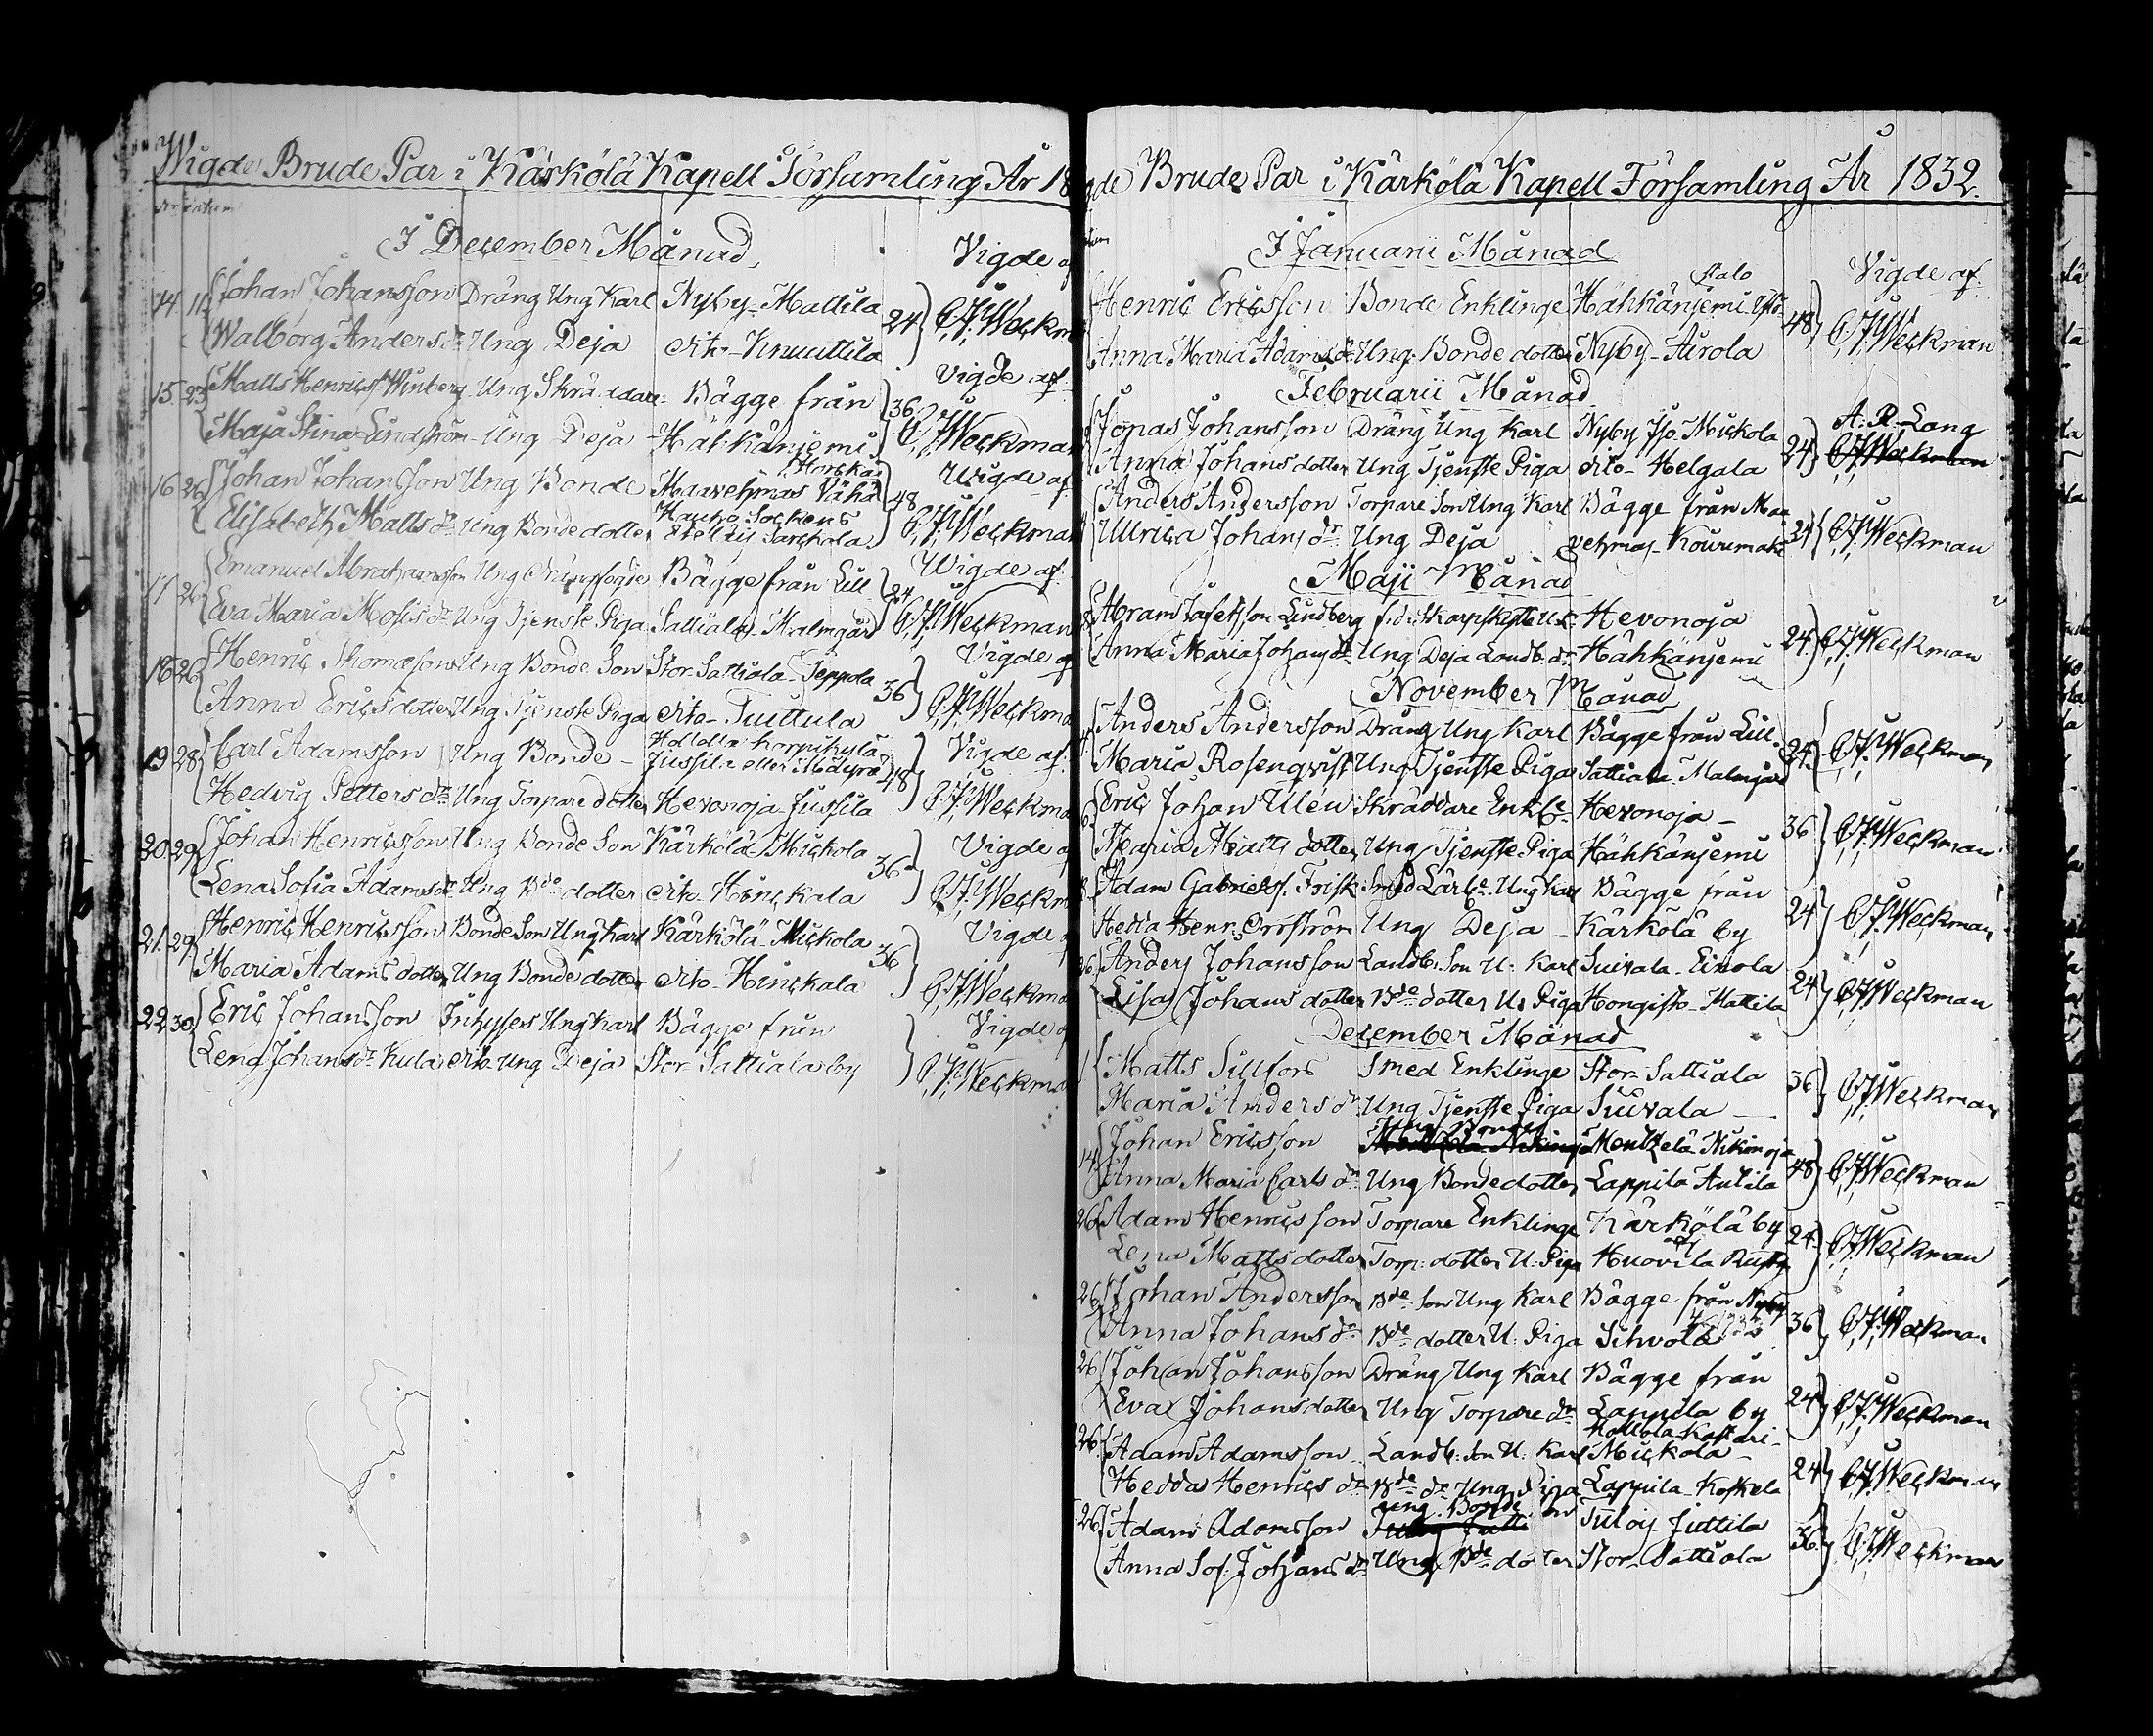 Wigde Brude Par i Kärkölä Kapell Församling År 18
I December Månad
Vigde af
14. 11. Johan Johansson Drång Ung Karl Nyby Mattila 24
Walborg Anders dr Ung Deja dito Knuuttila C.J. Weckm
Vigde af
15. 23 Matts Henricss. Winberg Ung Skräddare Bägge från 36
Maja Stina Lindström Ung Deja Hähkänjemi C.J. Weckman
Horska
Wigde af
16 26 Johan Johansson Ung Bonde Maavehmas Vähä 48
Hauho Sockens
Elisabeth Matts dr Ung Bonde dotter C.J. Weckman
Wigde af
17 26 Emanuel Abrahamsson Ung Bägge från Lill 24
Eva Maria Mosis dr Ung Tjenste Piga Sattiala Malmgård C.J. Weckman
Vigde af
18 26 Henric Thomasson Ung Bonde Son Stor Sattiala Seppola 36
Anna Ericsdotter Ung Tjenste Piga dito Tuittula C.J. Weckma
Hollola Korpikylä
Vigde af
19 28 Carl Adamsson Ung Bonde Jussila eller 48
Hedvig Petters dr Ung Torpare dotter Hevonoja Jussila C.J. Weckma
Vigde af
20. 29 Johan Henricsson Ung Bonde Son Kärkölä Mickola 36
Lena Sofia Adams dr Ung Bde dotter dito Hinckala C.J. Weckm
Vigde
21. 29 Henric Henricsson Bonde Son Ung Karl Kärkölä Mickola 36
Maria Adams dotter Ung Bonde dotter dito Hinckala C.J. Weckma
Vigde
22 30 Eric Johansson Inhyses Ung Karl Bägge från
Lena Johans dr Kula dito Ung Deja Stor Sattiala by C.J. Weckma
gde Brude Par i Kärkölä Kapell Församling År 1832.
I Januarii Månad
Vigde af
Henric Ericsson Bonde Enklinge Hähkänjemi 48
Anna Maria Adams dr Ung Bonde dotter Nyby Airola C.J. Weckman
Februarii Månad
Jonas Johansson Drång Ung Karl Nyby Mickola A. R. Lang
Anna Johans dotter Ung Tjenste Piga dito Helgala 24 C.J. Weckman
Anders Andersson Torpare Son Ung Karl Bägge från Maa
Ulrica Johans dr Ung Deja vehmas Kouvumaki 24 C.J. Weckman
Maji Månad
Abram Josefsson Lindberg f.d. Hevonoja
Anna Maria Johans dr Ung Deja Landb. dr Hähkänjemi 24 C.J. Weckman
November Månad
Anders Andersson Drång Ung Karl Bägge från Lill
Maria Rosenqvist Ung Tjenste Piga Sattiala Malmgård 24 C.J. Weckman
Eric Johan Ulén Skräddare Enkl. Hevonoja
Maria Matts dotter Ung Tjenste Piga Hähkänjemi 36 C.J. Weckman
Adam Gabrielss. Frisk Smed Lärl. Ung Karl Bägge från
Hedda Henr. Orrström Ung Deja Kärkölä by 24 C.J. Weckman
26 Anders Johansson Landb. Son U. Karl Suivala Eirola
Lisa Johans dotter Bde dotter U. Piga Hongisto Mattila 24 C.J. Weckman
December Månad
Matts Sillfors Smed Enklinge Stor Sattiala
Maria Anders dr Ung Tjenste Piga Suivala 36 C.J. Weckman
Ung Bonde
14 Johan Ericsson Mentzelä Nikinoja
Anna Maria Carls dr Ung Bonde dotter Lappila Autila 48 C.J. Weckman
26 Adam Henricsson Torpare Enklinge Kärkölä by
Lena Mattsdotter Torp: dotter U: Piga Huovila 24 C.J. Weckman
26 Johan Andersson Bde Son Ung Karl Bägge från Nyby
Anna Johans dr Bde dotter U: Piga Sihvola 36 C.J. Weckman
26 Johan Johansson Drång Ung Karl Bägge från
Eva Johansdotter Ung Torpare dr Lappila by 24 C.J. Weckman
Hollola Kastari
26 Adam Adamsson Landb: Son U: Karl Mickola
Hedda Henrics dr Bde dr Ung Piga Lappila Koskela 24 C.J. Weckman
Ung Bonde
26 Adam Adamsson Tulois Juttila
Anna Sof. Johans dr Ung Bde dotter Stor Sattiala 36 C.J. Weckman